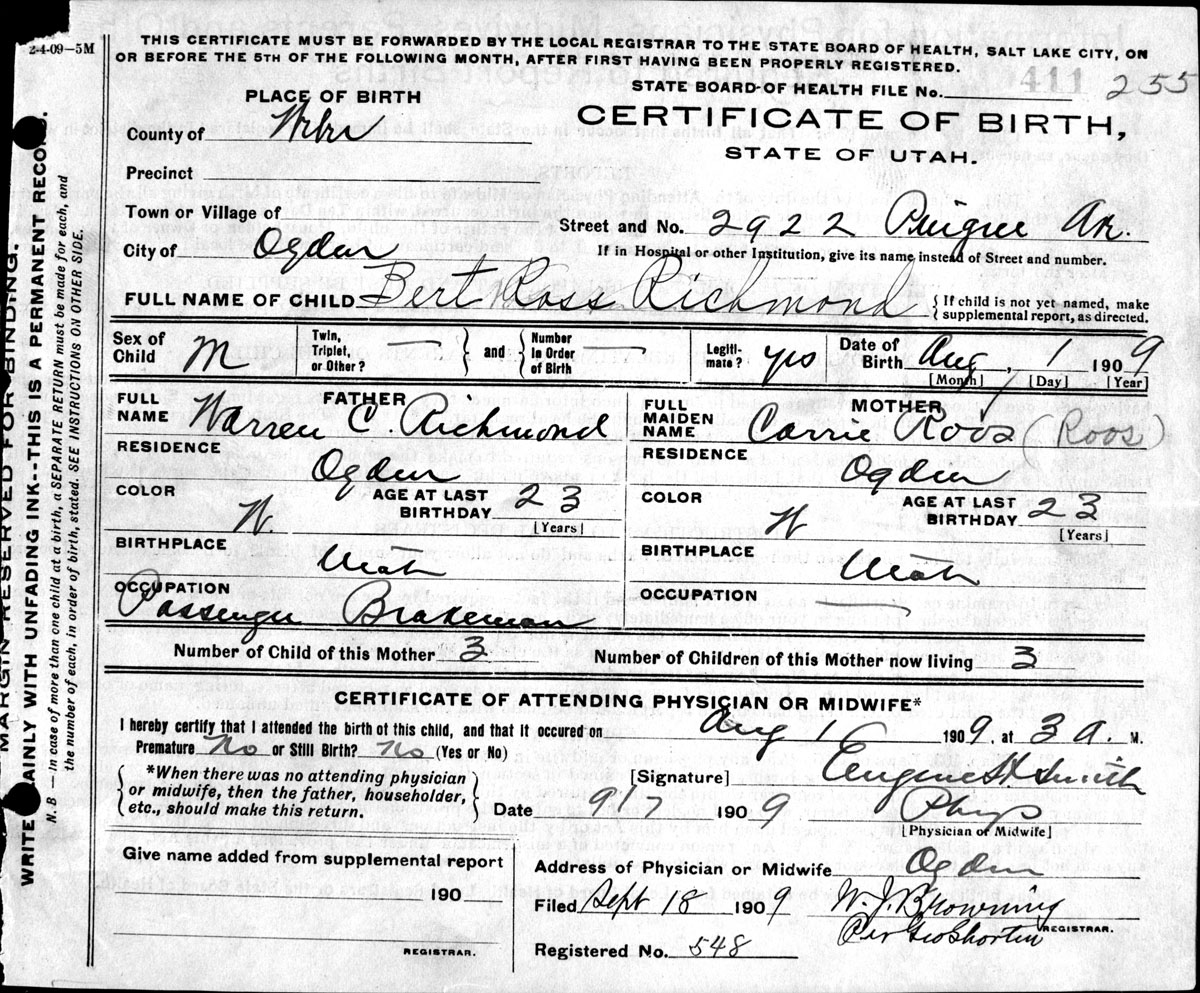 2-4-09—5M
THIS CERTIFICATE MUST BE FORWARDED BY THE LOCAL REGISTRAR TO THE STATE BOARD OF HEALTH, SALT LAKE CITY, ON
OR BEFORE THE 5TH OF THE FOLLOWING MONTH, AFTER FIRST HAVING BEEN PROPERLY REGISTERED.
STATE BOARD OF HEALTH FILE No. 411 255
PLACE OF BIRTH
CERTIFICATE OF BIRTH,
STATE OF UTAH.
County of Weber
Precinct
Town or Village of
Street and No. 2922 Pingree Av.
City of Ogden
If in Hospital or other Institution, give its name instead of Street and number.
FULL NAME OF CHILD Bert Ross Richmond { If child is not yet named, make supplemental report, as directed.
Sex of Child M Twin, Triplet, or Other? — } and { Number In Order of Birth — Legitimate? yes Date of Birth Aug, 1 1909
[Month] [Day] [Year]
FATHER
FULL NAME Warren C. Richmond
RESIDENCE
Ogden
COLOR W AGE AT LAST BIRTHDAY 23
[Years]
BIRTHPLACE
Utah
OCCUPATION
Passenger Brakeman
MOTHER
FULL MAIDEN NAME Carrie Roos (Roos)
RESIDENCE
Ogden
COLOR W AGE AT LAST BIRTHDAY 23
[Years]
BIRTHPLACE
Utah
OCCUPATION —
Number of Child of this Mother 3 Number of Children of this Mother now living 3
CERTIFICATE OF ATTENDING PHYSICIAN OR MIDWIFE*
I hereby certify that I attended the birth of this child, and that it occured on Aug 1 1909, at 3 a. M.
Premature No or Still Birth? No (Yes or No)
{ *When there was no attending physician or midwife, then the father, householder, etc., should make this return. }
[Signature] Eugene H Smith
Date 9/17 1909 Phys
[Physician of Midwife]
Give name added from supplemental report
190
REGISTRAR.
Address of Physician or Midwife Ogden
Filed Sept 18 1909 W. J. Browning
Per Geo Shorten REGISTRAR.
Registered No. 548
MARGIN RESERVED FOR BINDING.
WRITE PLAINLY WITH UNFADING INK--THIS IS A PERMANENT RECORD.
N. B.—in case of more than one child at a birth, a SEPARATE RETURN must be made for each, and
the number of each, in order of birth, stated. SEE INSTRUCTIONS ON OTHER SIDE.